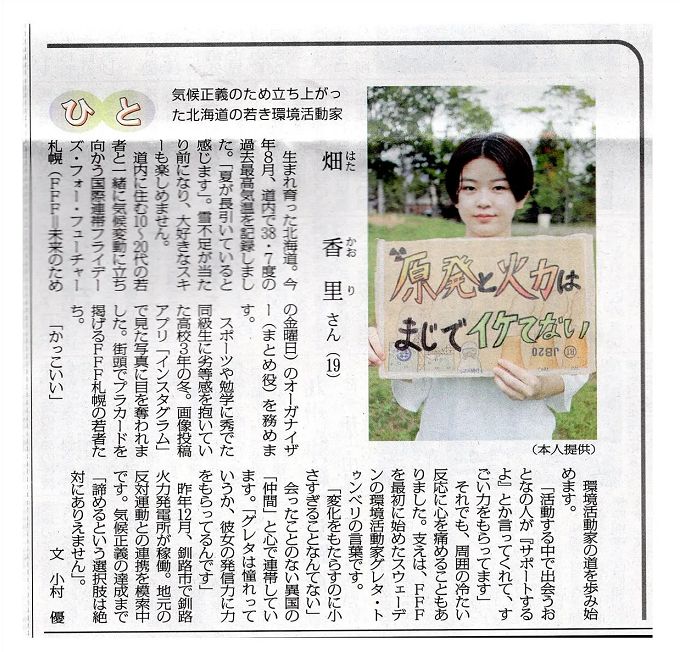 ひと
気候正義のため立ち上がっ
た北海道の若き環境活動家
畑 香里さん(19)
はた かおり
原発と火力は
まじでイケてない
JB20
(本人提供)
生まれ育った北海道。今
年8月、道内で38・7度の
過去最高気温を記録しまし
た。「夏が長引いていると
感じます」。雪不足が当た
り前になり、大好きなスキ
ーも楽しめません。
道内に住む10〜20代の若
者と一緒に気候変動に立ち
向かう国際連帯フライデー
ズ・フォー・フューチャー
札幌(FFF=未来のため
の金曜日)のオーガナイザ
ー(まとめ役)を務めま
す。
スポーツや勉学に秀でた
同級生に劣等感を抱いてい
た高校3年の冬。画像投稿
アプリ「インスタグラム」
で見た写真に目を奪われま
した。街頭でプラカードを
掲げるFFF札幌の若者た
ち。
「かっこいい」
環境活動家の道を歩み始
めます。
「活動する中で出会うお
となの人が『サポートする
よ』とか言ってくれて、す
ごい力をもらってます」
それでも、周囲の冷たい
反応に心を痛めることもあ
りました。支えは、FFF
を最初に始めたスウェーデ
ンの環境活動家グレタ・ト
ゥンベリの言葉です。
「変化をもたらすのに小
さすぎることなんてない」
会ったことのない異国の
「仲間」と心で連帯してい
ます。「グレタは憧れって
いうか、彼女の発信力に力
をもらってるんです」
昨年12月、釧路市で釧路
火力発電所が稼働。地元の
反対運動との連携を模索中
です。気候正義の達成まで
「諦めるという選択肢は絶
対にありえません」。
文 小村 優